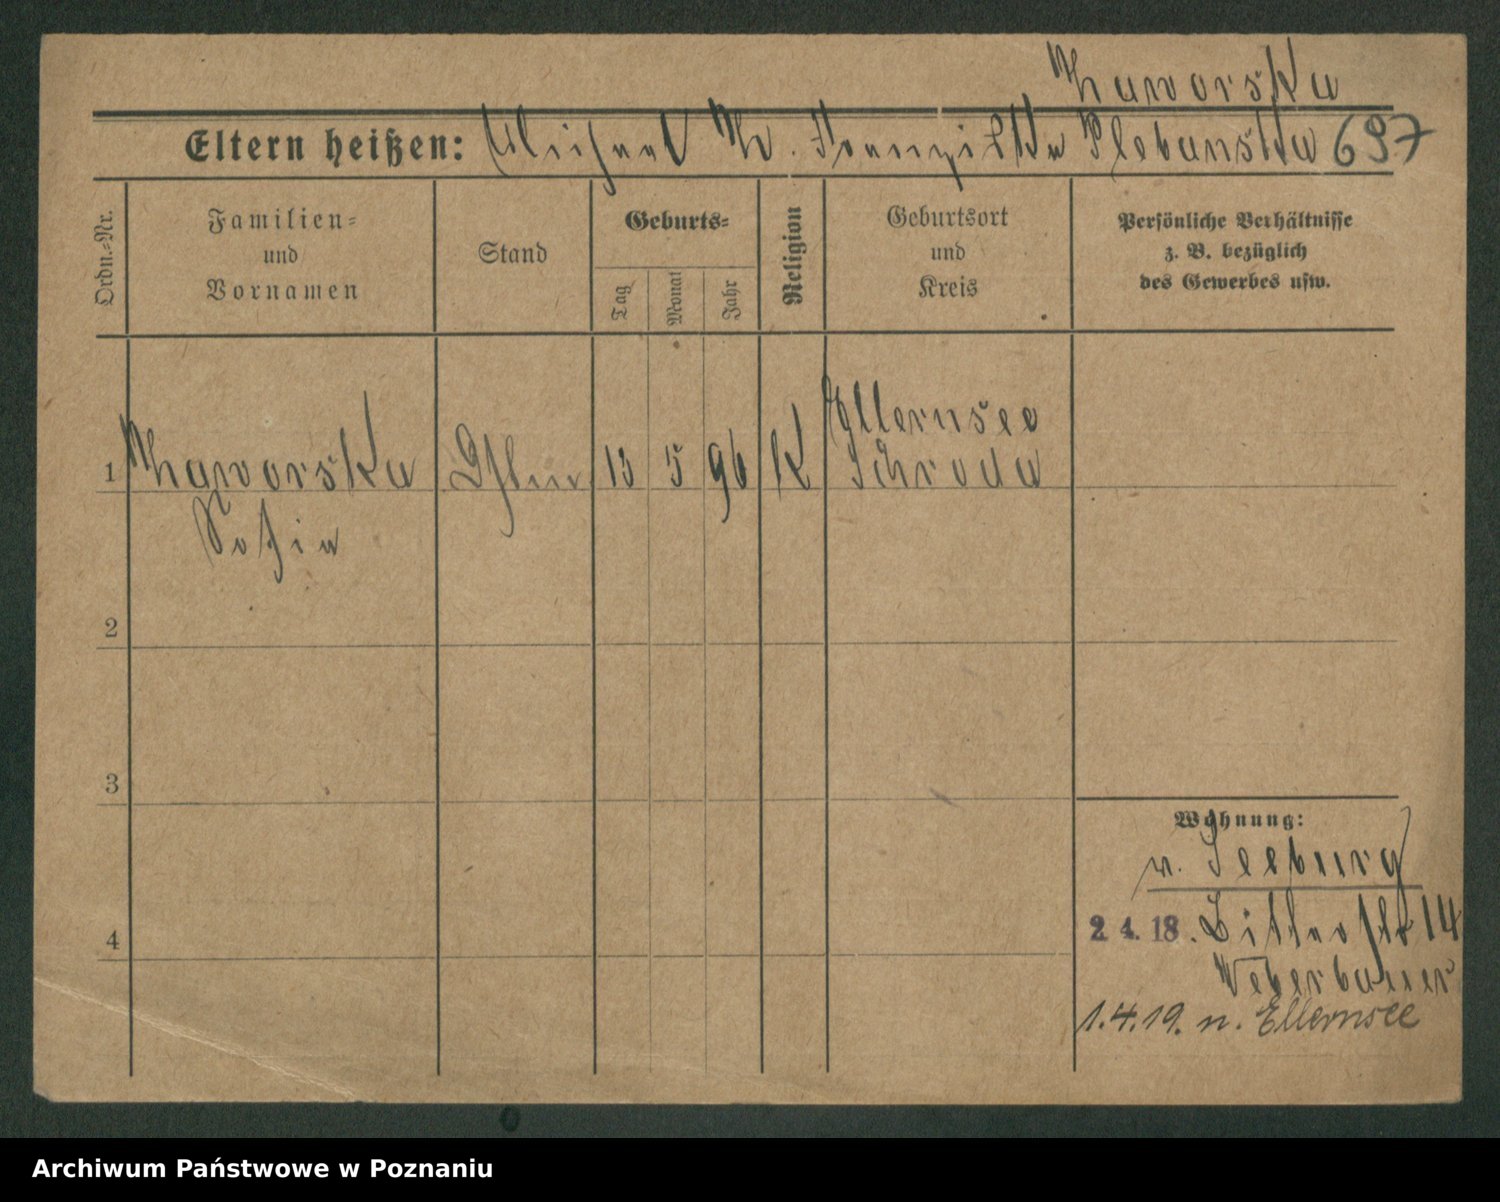 Naworska
Eltern heißen: Michael N. Franziska Plebanska 697
Ordn.-Nr.
Familien-
und
Vornamen
Stand
Geburts-
Tag
Monat
Jahr
Religion
Geburtsort
und
Kreis
Persönliche Verhältnisse
z. B. bezüglich
des Gewerbes usw.
1 Naworska 13 5 96 K Ellernsee
Schroda
Sofia
2
3
4
Wohnung:
v. Seeburg
2. 4. 18. Bitterstr 14
Weberbauer
1.4.19. n. Ellernsee
Archiwum Państwowe w Poznaniu